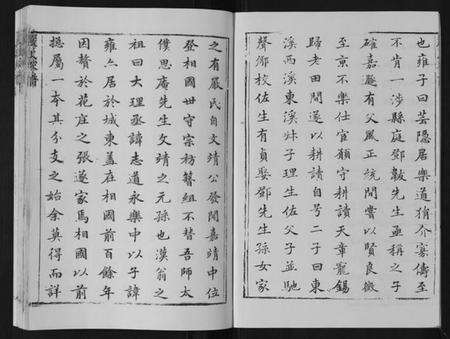 也雍子曰芸隱居樂道狷介寡儔至
不肯一涉縣庭鄧韍先生亟稱之子
確嘉遯有父風正統間嘗以賢良徵
至京不樂仕官願守耕讀天章寵錫
歸老田間遂以耕請自号二子曰東
溪西溪東溪妹子理生佐父子並馳
聲鄉校佐生有員娶鄧先生孫女家
之有嚴氏自文靖公發聞嘉靖中位
登相國世守宗祊簪組不替吾師太
僕思庵先生文靖之元孫也漢翁之
祖曰大理丞諱志道永樂中以子諱
雍亠居於城東蓋在相國前百餘年
因贅於花庄之張遂家馬相國以前
總屬一本其分支之始余莫得而詳